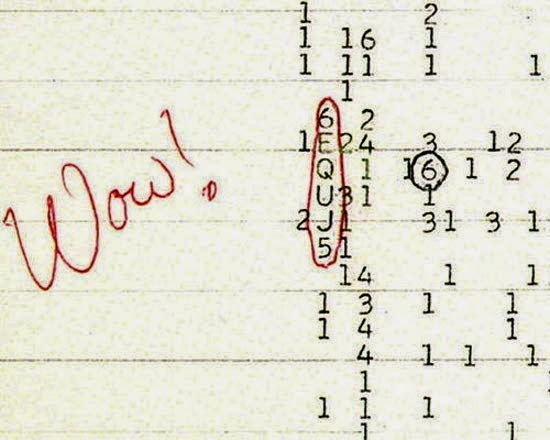 1 2
1 16 1
1 11 1 1
1
6 2
1 E 24 3 12
Wow!
Q 1 16 1 2
U31 1
2 J1 31 3 1
51
14 1 1
1 3 1 1
1 4 1
4 1 1 1
1
1 1 1
1 1